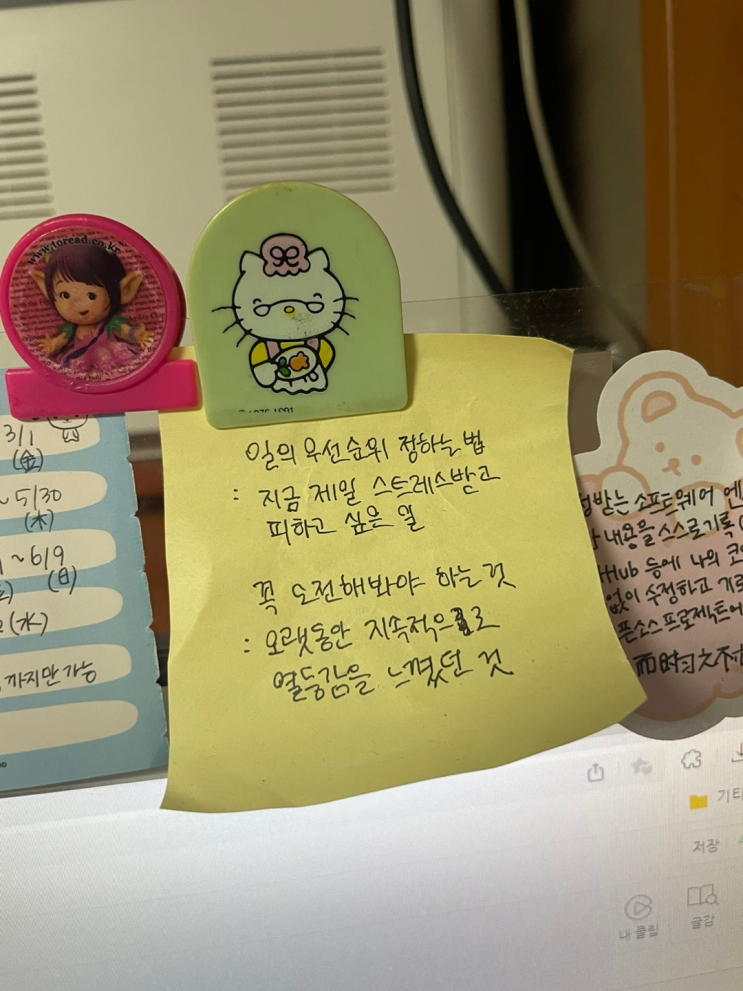 www.toread.co.kr
3/1
(金)
~5/30
(木)
~6/9
(日)
(水)
까지만 가능
일의 우선순위 정하는 법
: 지금 제일 스트레스받고
피하고 싶은 일
꼭 도전해봐야 하는 것
: 오랫동안 지속적으로
열등감을 느꼈던 것
받는 소프트웨어 엔
내용을 스스로 기록
Hub 등에 나의 코
없이 수정하고 기로
픈소스 프로젝트에
而时习之不
기타
저장
내 클립
글감